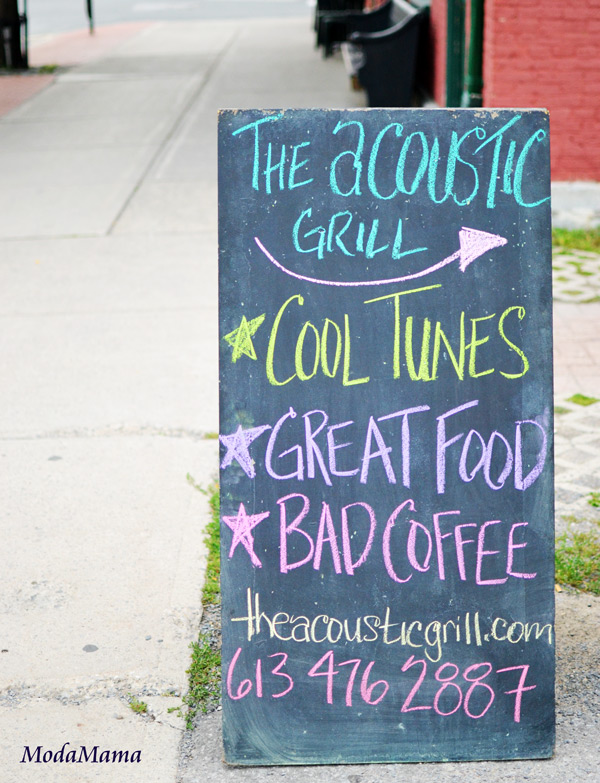 THE ACOUSTIC
GRILL
COOL TUNES
GREAT FOOD
BAD COFFEE
theacousticgrill.com
613 476 2887
ModaMama